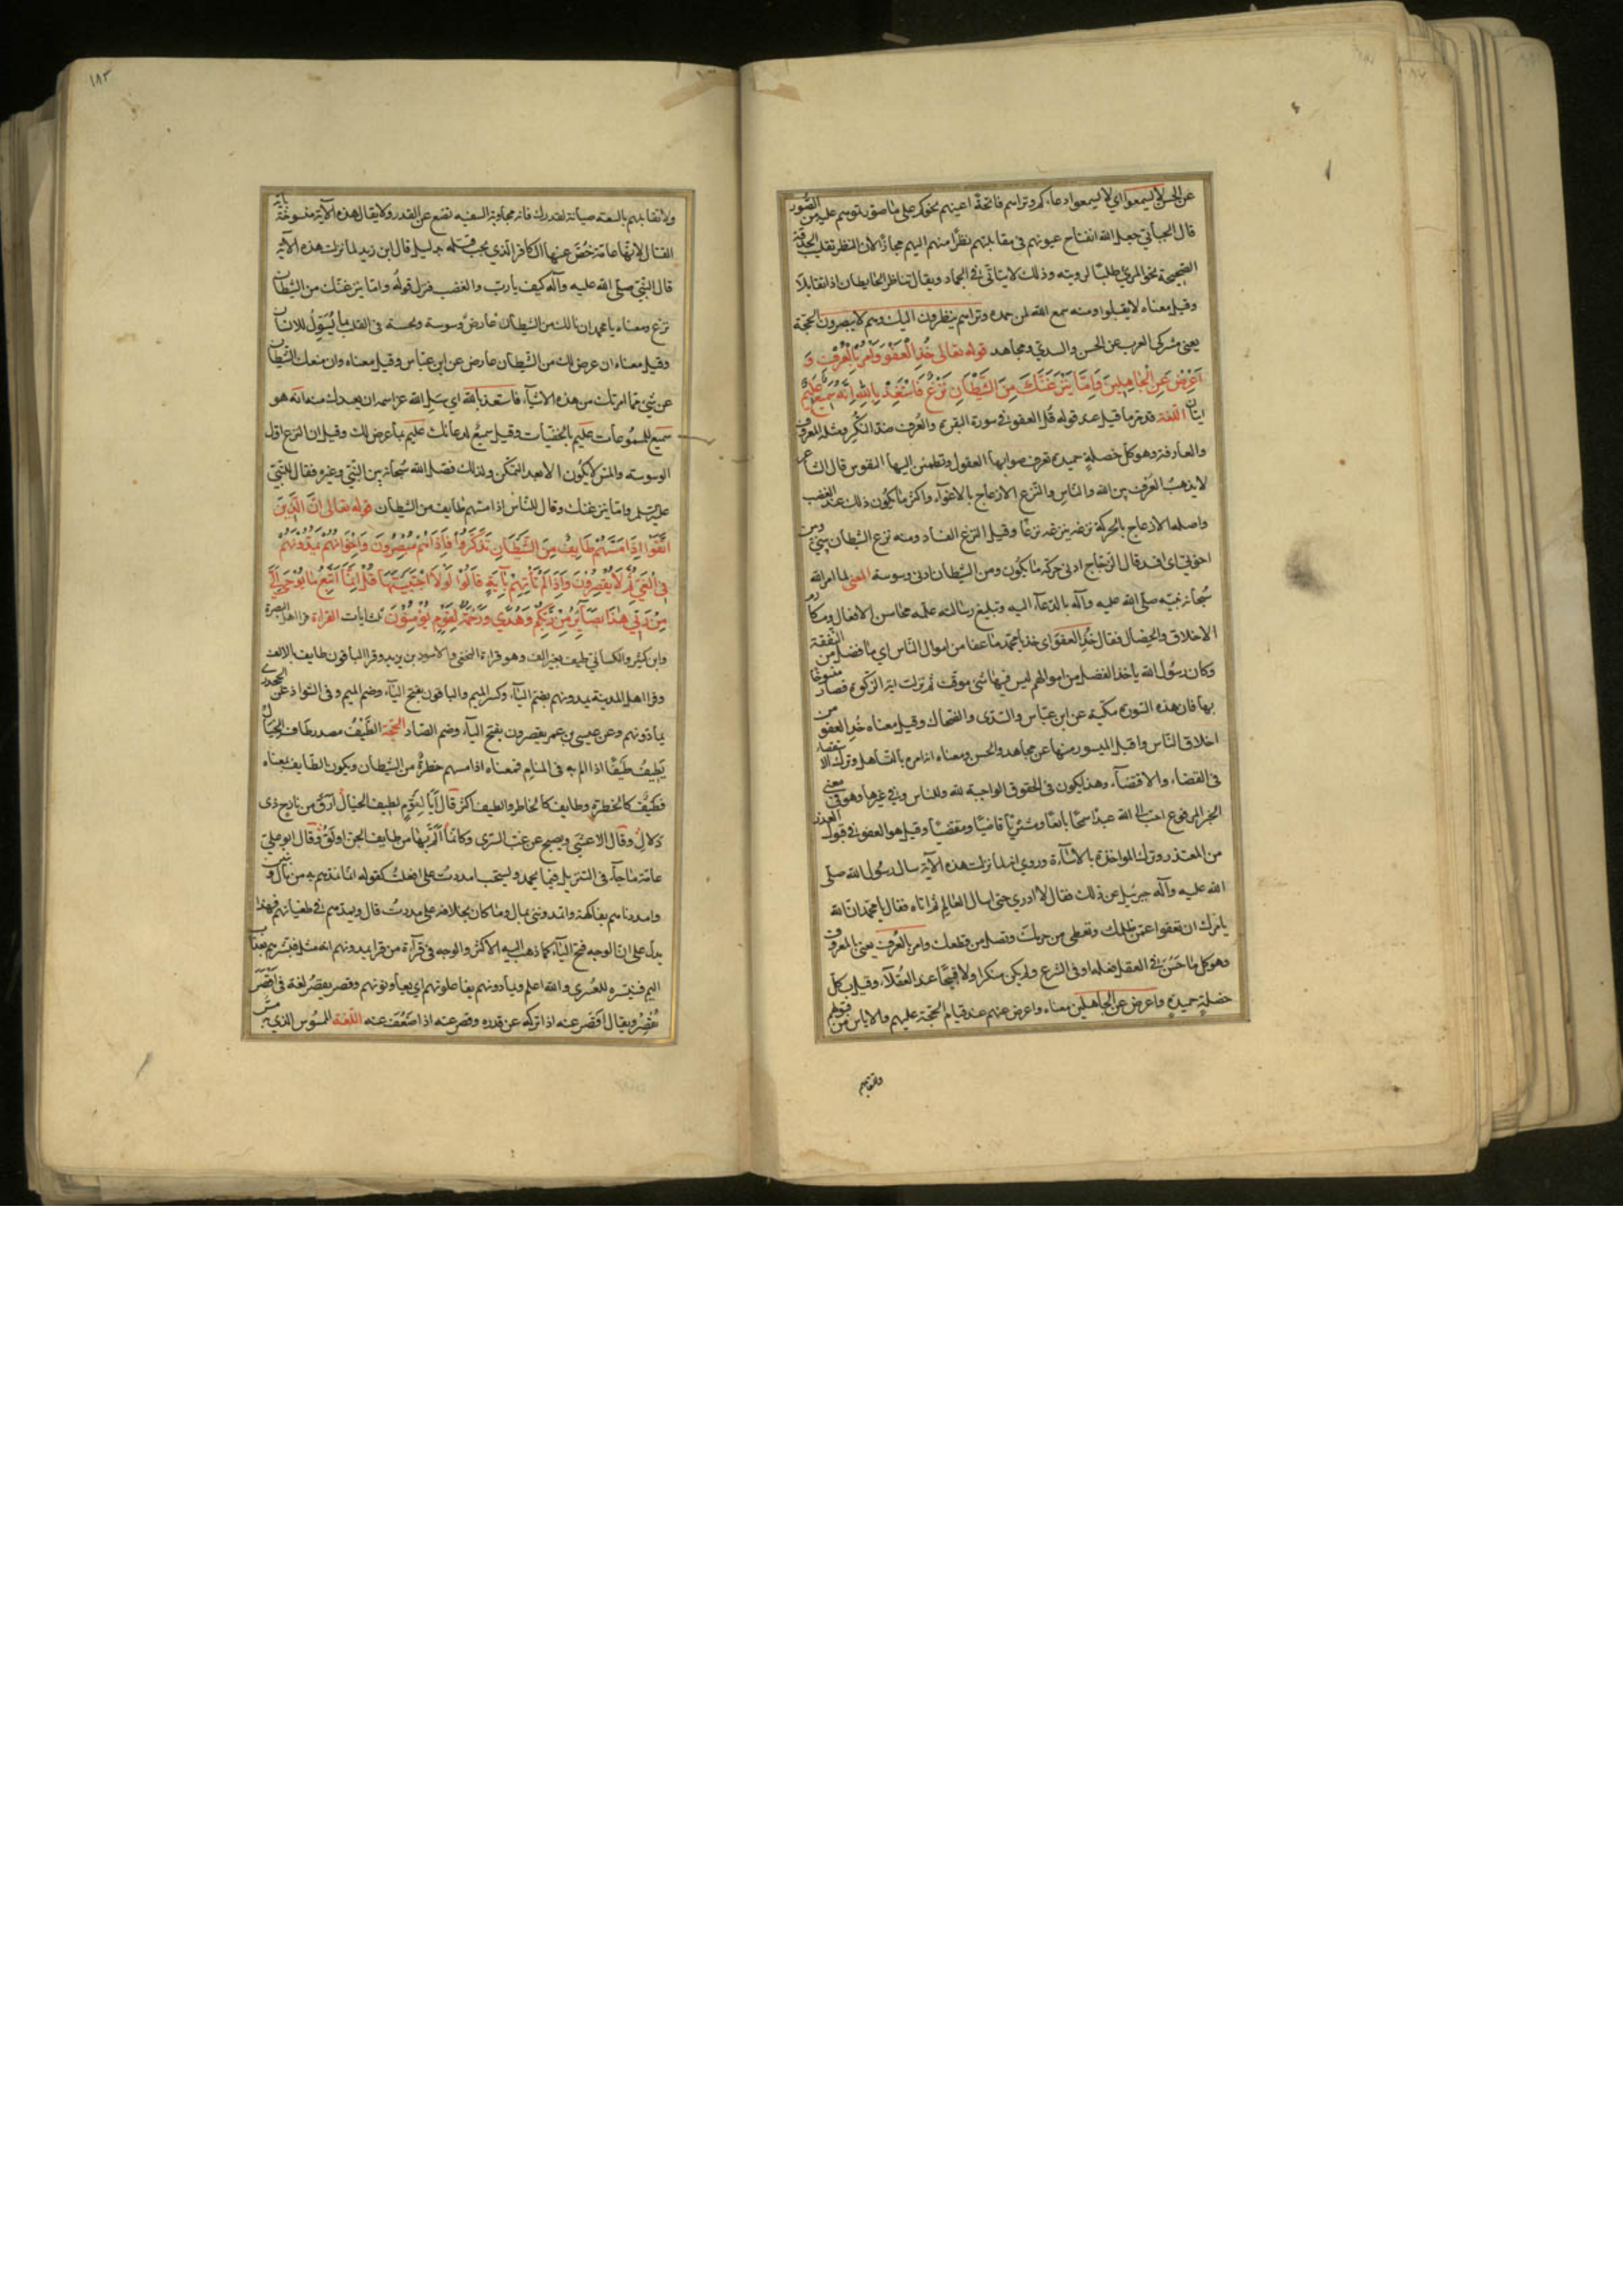 عن الحسن لا يسمعوا اي لا يسمعوا دعاءكم وتراهم فاتحة اعينهم نحوكم على ما صورتموهم عليه من الصور
قال الجبائي جعل الله انفتاح عيونهم في مقابلتهم نظرا منهم اليهم مجازا لان النظر تقليب الحدقة
الصحيحة نحو المرئي طلبا لرويته وذلك لا يتاتى في الجماد ويقال تناظر الحايطان اذا تقابلا
وقيل معناه لا يقبلوا ومنه سمع الله لمن حمده وتراهم ينظرون اليك وهم لا يبصرون الحجة
يعني مشركي العرب عن الحسن والسدي ومجاهد قوله تعالى خُذِ الْعَفْوَ وَأْمُرْ بِالْعُرْفِ وَ
اَعْرِضْ عَنِ الْجَاهِلِينَ وَاِمَّا يَنْزَغَنَّكَ مِنَ الشَّيْطَانِ نَزْغٌ فَاسْتَعِذْ بِاللهِ اِنَّهُ سَمِيعٌ عَلِيمٌ
ايتان اللغة قد مر ما قيل عند قوله قل العفو في سورة البقرة والعُرف ضد النكر ومثله المعروف
والعارفة وهو كل خصلة حميدة تعرف صوابها العقول وتطمئن اليها النفوس قال الشاعر
لا يذهب العُرف بين الله والناس والنزغ الازعاج بالاغواء واكثر ما يكون ذلك عند الغضب
واصله الازعاج بالحركة نزغه ينزغه نزغا وقيل النزغ الفساد ومنه نزغ الشيطان بيني وبين
اخوتي اي افسد قال الزجاج ادنى حركة ما يكون ومن الشيطان ادنى وسوسة المعنى لما امر الله
سُبحانه نبيه صلى الله عليه وآله بالدعاء اليه وتبليغ رسالته علمه محاسن الافعال ومكارم
الاخلاق والخصال فقال خُذِ العفو اي خذ يا محمد ما عفا من اموال الناس اي ما فضل من النفقة
وكان رسول الله ياخذ الفضل من اموالهم ليس فيها شئ موقت ثم نزلت اية الزكوة فصار منسوخا
بها فان هذه السورة مكية عن ابن عباس والسدي والضحاك وقيل معناه خُذِ العفو من
اخلاق الناس واقبل الميسور منها عن مجاهد والحسن ومعناه انه امره بالتساهل وترك الاستقصاء
في القضاء والاقتضاء وهذا يكون في الحقوق الواجبة لله وللناس وفي غيرها وهو في معنى
الخبر المرفوع احب الله عبدا سمحا بايعا ومشتريا قاضيا ومقتضيا وقيل هو العفو في قبول العذر
من المعتذر وترك المواخذة بالاساءة وروي انه لما نزلت هذه الآية سال رسول الله صلى
الله عليه وآله جبرئيل عن ذلك فقال لا ادري حتى اسال العالم ثم اتاه فقال يا محمد ان الله
يامرك ان تعفو عمن ظلمك وتعطي من حرمك وتصل من قطعك وامر بالعُرف يعني بالمعروف
وهو كل ما حَسُنَ في العقل فعله او في الشرع ولم يكن منكرا ولا قبيحا عند العُقلاء وقيل بكل
خصلة حميدة واعرض عن الجاهلين معناه واعرض عنهم عند قيام الحجة عليهم والاياس من قبولهم
ولا تقابلهم
ولا تقابلهم بالسفه صيانة لقدرك فان مجاوبة السفيه تضع عن القدر ولا يقال هذه الآية منسوخة باية
القتال لانها عامة خُصَّ عنها الكافر الذي يجب قتله بدليل قال ابن زيد لما نزلت هذه الآية
قال النبي صلى الله عليه وآله كيف يا رب والغضب فنزل قوله واما ينزغنك من الشيطان
نزغ ومعناه يا محمد ان نالك من الشيطان عارض وسوسة ونخسة في القلب بما يُسَوِّلُ للانسان
وقيل معناه ان عرض لك من الشيطان عارض عن ابن عباس وقيل معناه وان منعك الشيطان
عن شيء مما امرتك من هذه الاشياء فاستعذ بالله اي سل الله عز اسمه ان يعيذك منه انه هو
سميع للمسموعات عليم بالخفيات وقيل سميع لدعائك عليم بما عرض لك وقيل ان النزغ اول
الوسوسة والمس لا يكون الا بعد التمكن ولذلك فصل الله سُبحانه بين النبي وغيره فقال للنبي
عليه السلم واما ينزغنك وقال للناس اذا مسهم طايف من الشيطان قوله تعالى اِنَّ الَّذِينَ
اتَّقَوْا اِذَا مَسَّهُمْ طَايِفٌ مِنَ الشَّيْطَانِ تَذَكَّرُوا فَاِذَا هُمْ مُبْصِرُونَ وَاِخْوَانُهُمْ يَمُدُّونَهُمْ
فِي الْغَيِّ ثُمَّ لَا يُقْصِرُونَ وَاِذَا لَمْ تَأْتِهِمْ بِآيَةٍ قَالُوا لَوْلَا اجْتَبَيْتَهَا قُلْ اِنَّمَا اَتَّبِعُ مَا يُوحَى اِلَيَّ
مِنْ رَبِّي هَذَا بَصَآئِرُ مِنْ رَبِّكُمْ وَهُدًى وَرَحْمَةٌ لِقَوْمٍ يُؤْمِنُونَ ثلث ايات القراءة قرا اهل البصرة
وابن كثير والكسائي طيف بغير الف وهو قراءة النخعي والاسود بن يزيد وقرا الباقون طايف بالالف
وقرا اهل المدينة يمدونهم بضم الياء وكسر الميم والباقون بفتح الياء وضم الميم وفي الشواذ عن الجحدري
يمادونهم وعن عيسى بن عمر يقصرون بفتح الياء وضم الصاد الحجة الطَّيْفُ مصدر طاف الخيال
يَطِيفُ طَيْفًا اذا الم به في المنام فمعناه اذا مسهم خطرة من الشيطان ويكون الطايف بمعناه
فطيف كالخطرة وطايف كالخاطر والطيف اكثر قال اَلا يا لقوم لطيف الخيال ارق من نازح ذي
دَلالِ وقال الاعشى ويصبح عن غب السُرى وكانما اَلَمَّ بها من طايف الجن اولق وقال ابو علي
عامة ما جاء في التنزيل فيما يحمد ويستحب امددت على افعلت كقوله انما نمدهم به من مال وبنين
وامددناهم بفاكهة واتمدونني بمال وما كان بخلافه على مددت قال ويمدهم في طغيانهم فهذا
يدل على ان الوجه فتح الياء كما ذهب اليه الاكثر والوجه في قراءة من قرا يمدونهم انه مثل فبشرهم بعذاب
اليم فنيسره للعسرى والله اعلم ويمادونهم يفاعلونهم اي يعاونونهم وقصر يقصُر لغة في اَقْصَرَ
يُقْصِرُ ويقال اقصر عنه اذا تركه عن قدرة وقصر عنه اذا ضعف عنه اللغة الممسوس الذي به مس
١٨٣